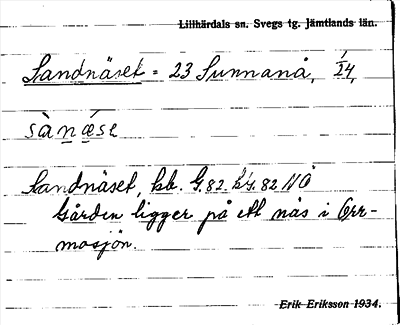 Lillhärdals sn. Svegs tg. Jämtlands län.
Sandnäset = 23 Sunnanå, 1/24,
sànǽse
Sandnäset, kb. G.82. h/4.82 NO
Gården ligger på ett näs i Orr-
mosjön.
Erik Eriksson 1934.